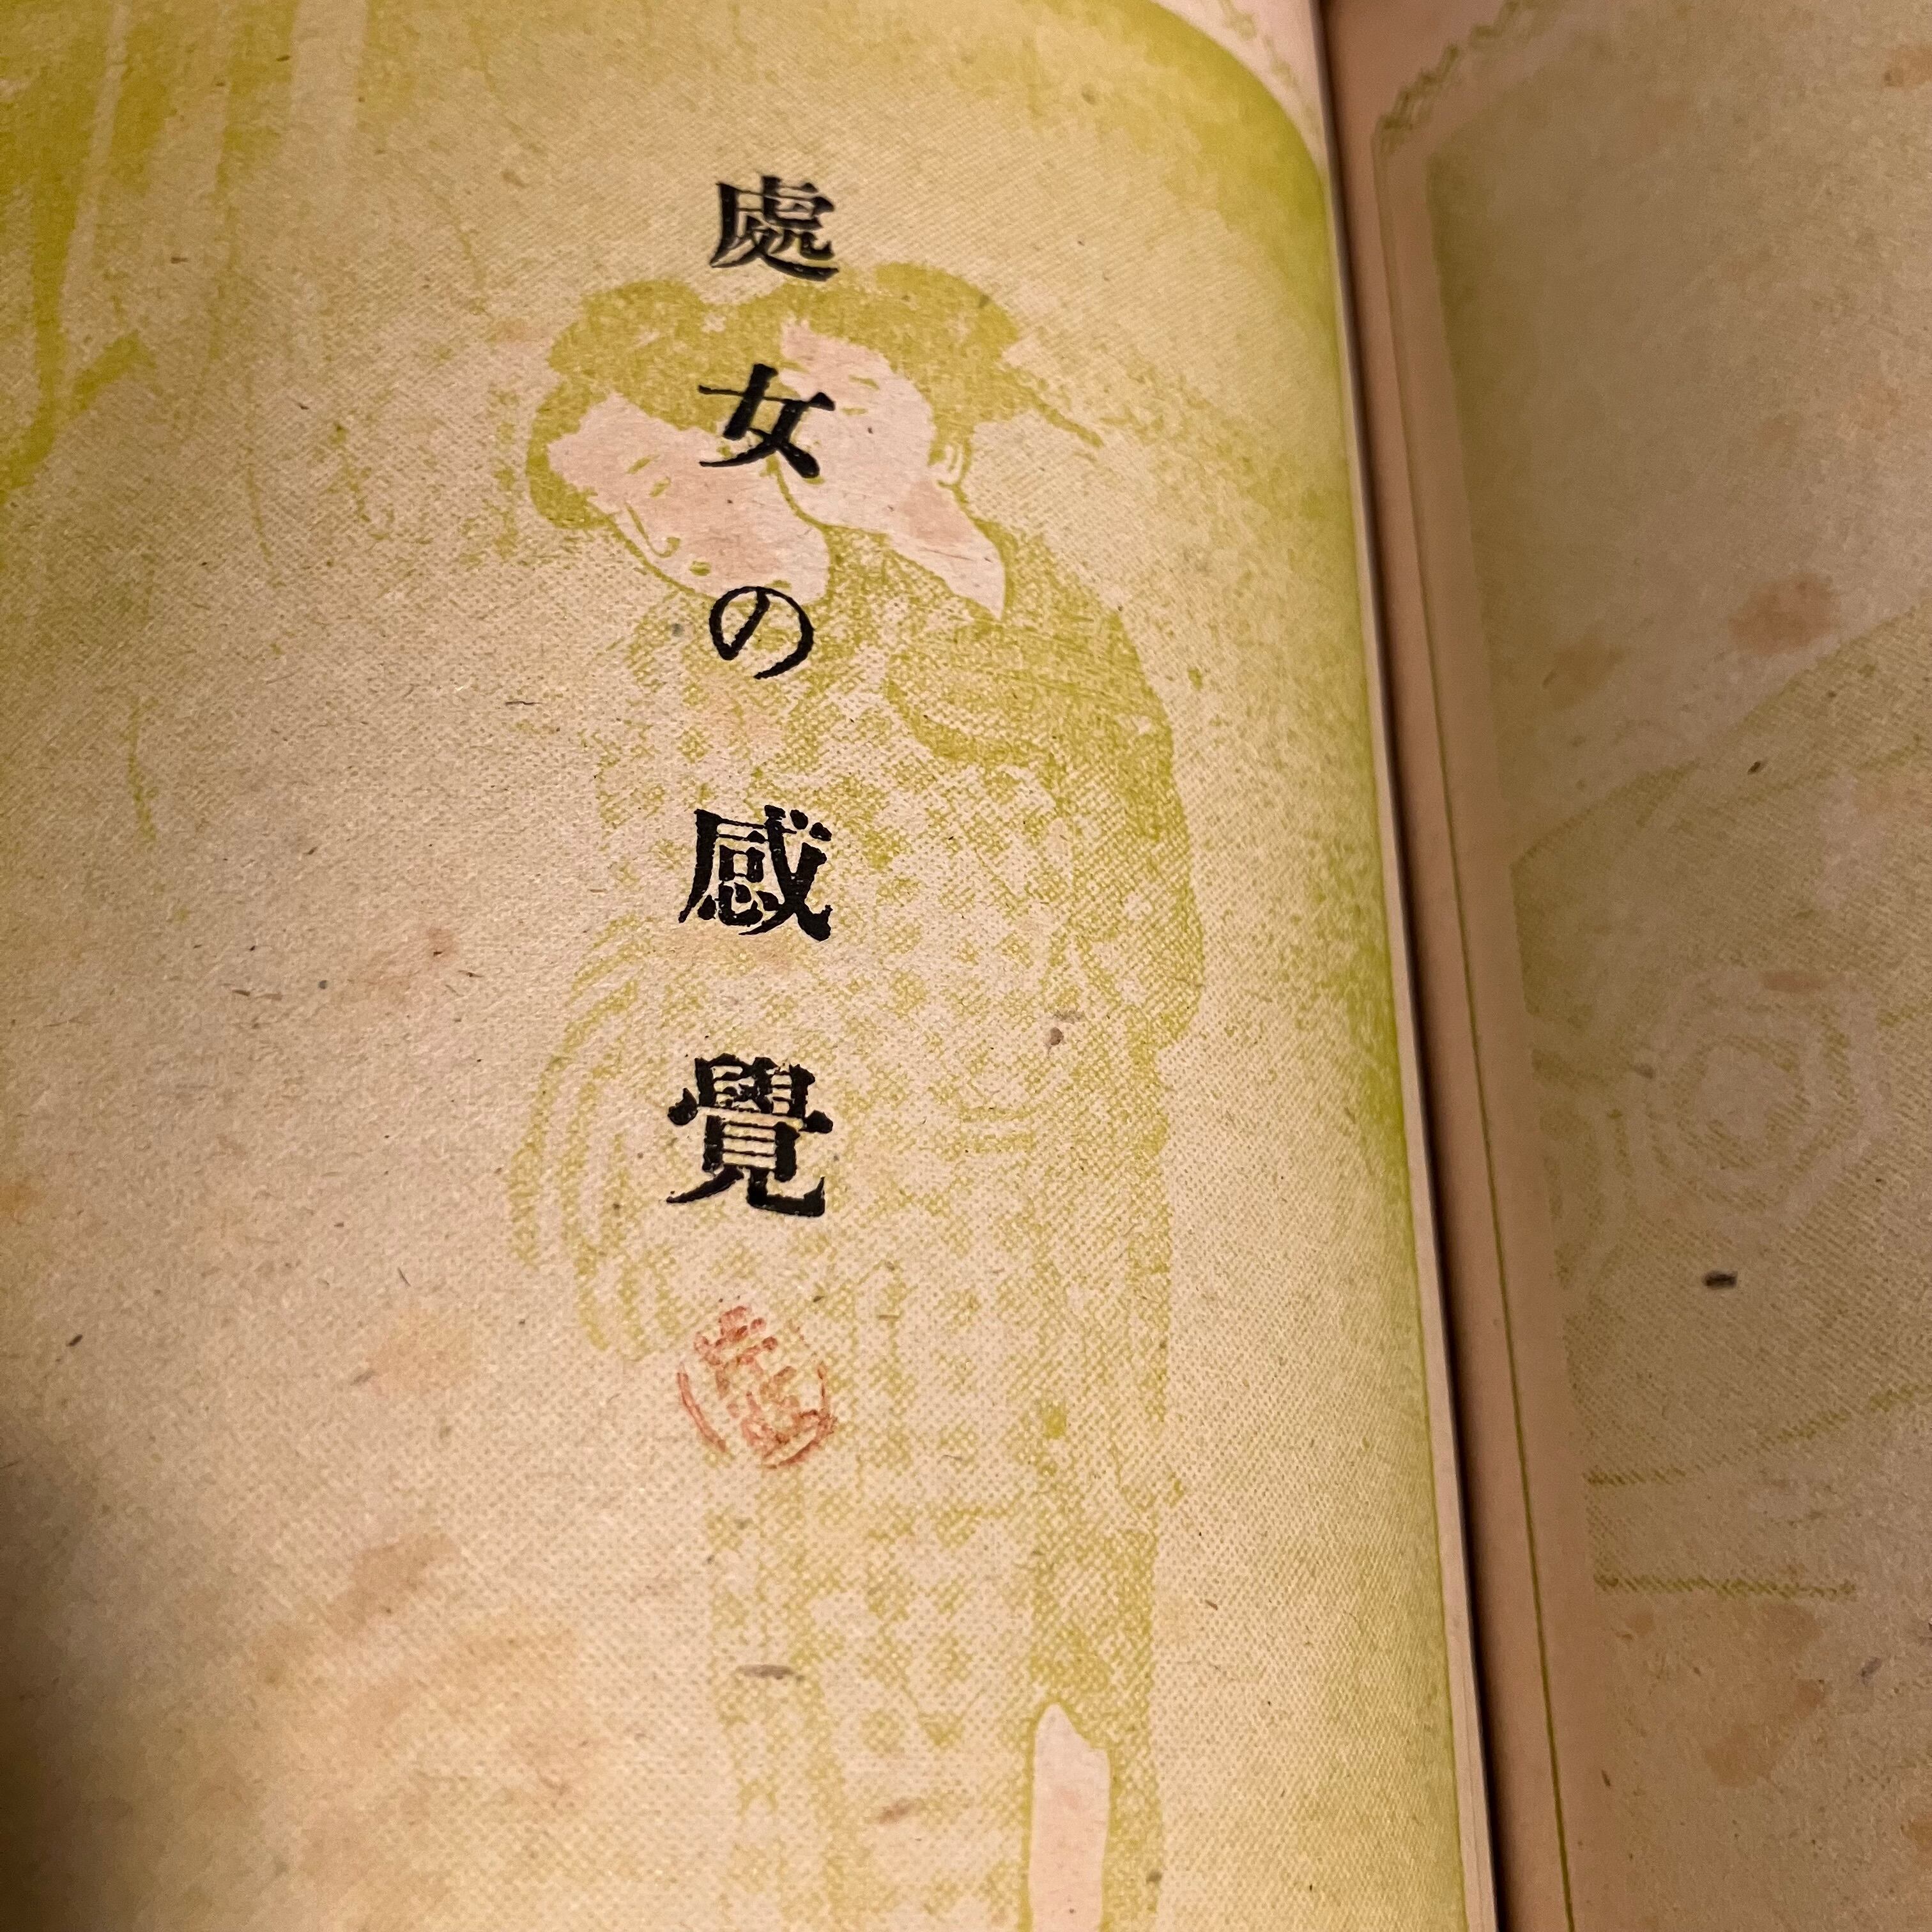 處女の感覺